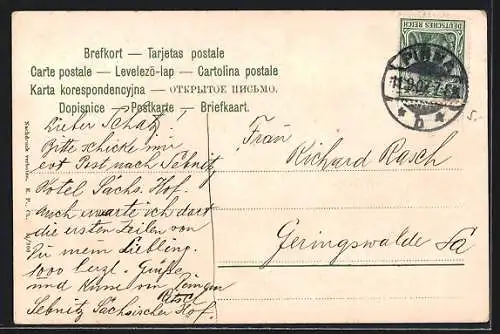 Brefkort — Tarjetas postale
Carte postale — Levelező-lap — Cartolina postale
Karta korespondencyjna — ОТКРЫТОЕ ПИСЬМО.
Dopisnice — Postkarte — Briefkaart.
DEUTSCHES REICH
PIRNA
Nachdruck verboten.
Lieber Schatz!
Bitte schicke mir
evt Post nach Sebnitz
Hotel Sächs. Hof.
Auch warte ich dort
die ersten Zeilen von
Dir mein Liebling.
1000 herzl. Grüße
und Küsse von
Sebnitz Sächsischer Hof.
Frau
Richard Rasch
Geringswalde Sa